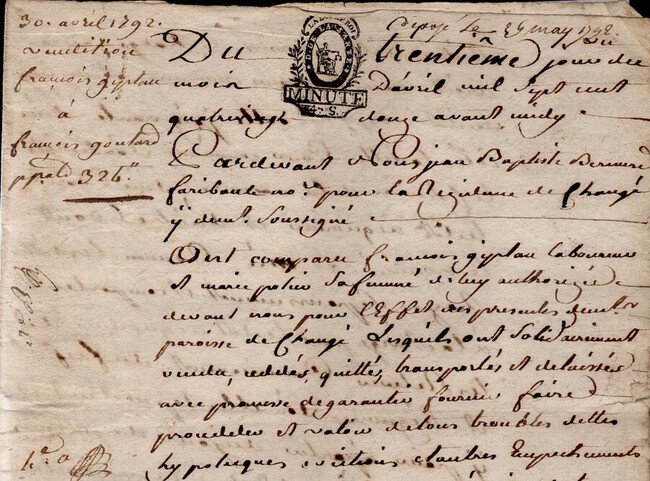 30. avril 1792.
vendition
françois gyptau
à
françois goutard
ppal 326tt
Déposé Le 25 may 1792.
MINUTE
4. S.
Du trentième jour du
mois D'avril mil Sept cent
quatre vingt douze avant midy
Pardevant Nous jean Baptiste Bernard
faribault no.re pour la Residence de Changé
y dem.t Soussigné
Est comparu françois gyptau laboureur
et marie potier Sa femme de luy authorizée
devant nous pour L'Effet des presentes dem.t
paroisse de Changé Lesquels ont Solidairement
vendu, ceddés, quittés, transportés et delaissés
avec promesse de garantie fournir faire
proceder et valoir de tous troubles dettes
hypoteques evictions et autres Empechements